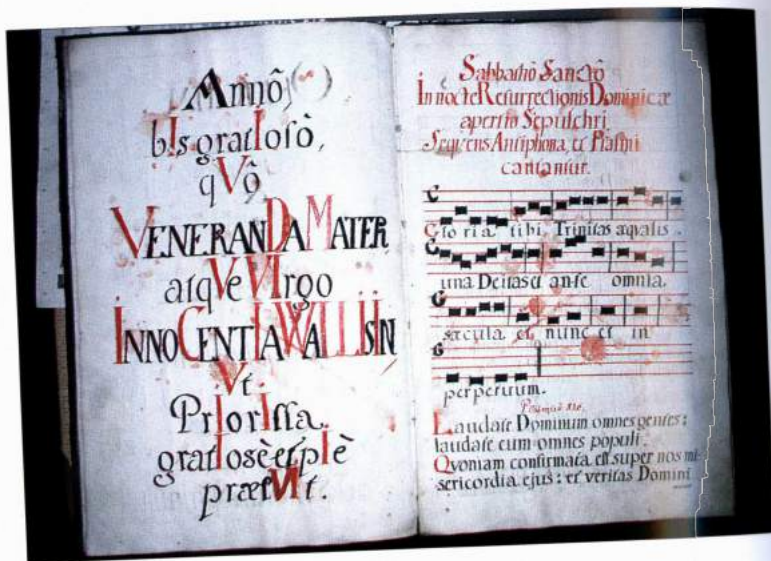 Annô
bIs gratIosô,
qVô
VENERANDA MATER
atqVe VIrgo
INNOCENTIA WALLISIN
Vt
PrIorIssa
gratIosè et pIè
præfVIt.
Sabbathô Sanctô
In nocte Resurrectionis Dominicæ
aperto Sepulchri
Sequens Antiphona, et Psalmi
cantantur.
Gloria tibi Trinitas æqualis
una Deitas et ante omnia
sæcula et nunc et in
perpetuum.
Laudate Dominum omnes gentes:
laudate eum omnes populi.
Qvoniam confirmata est super nos mi
sericordia ejus: et veritas Domini